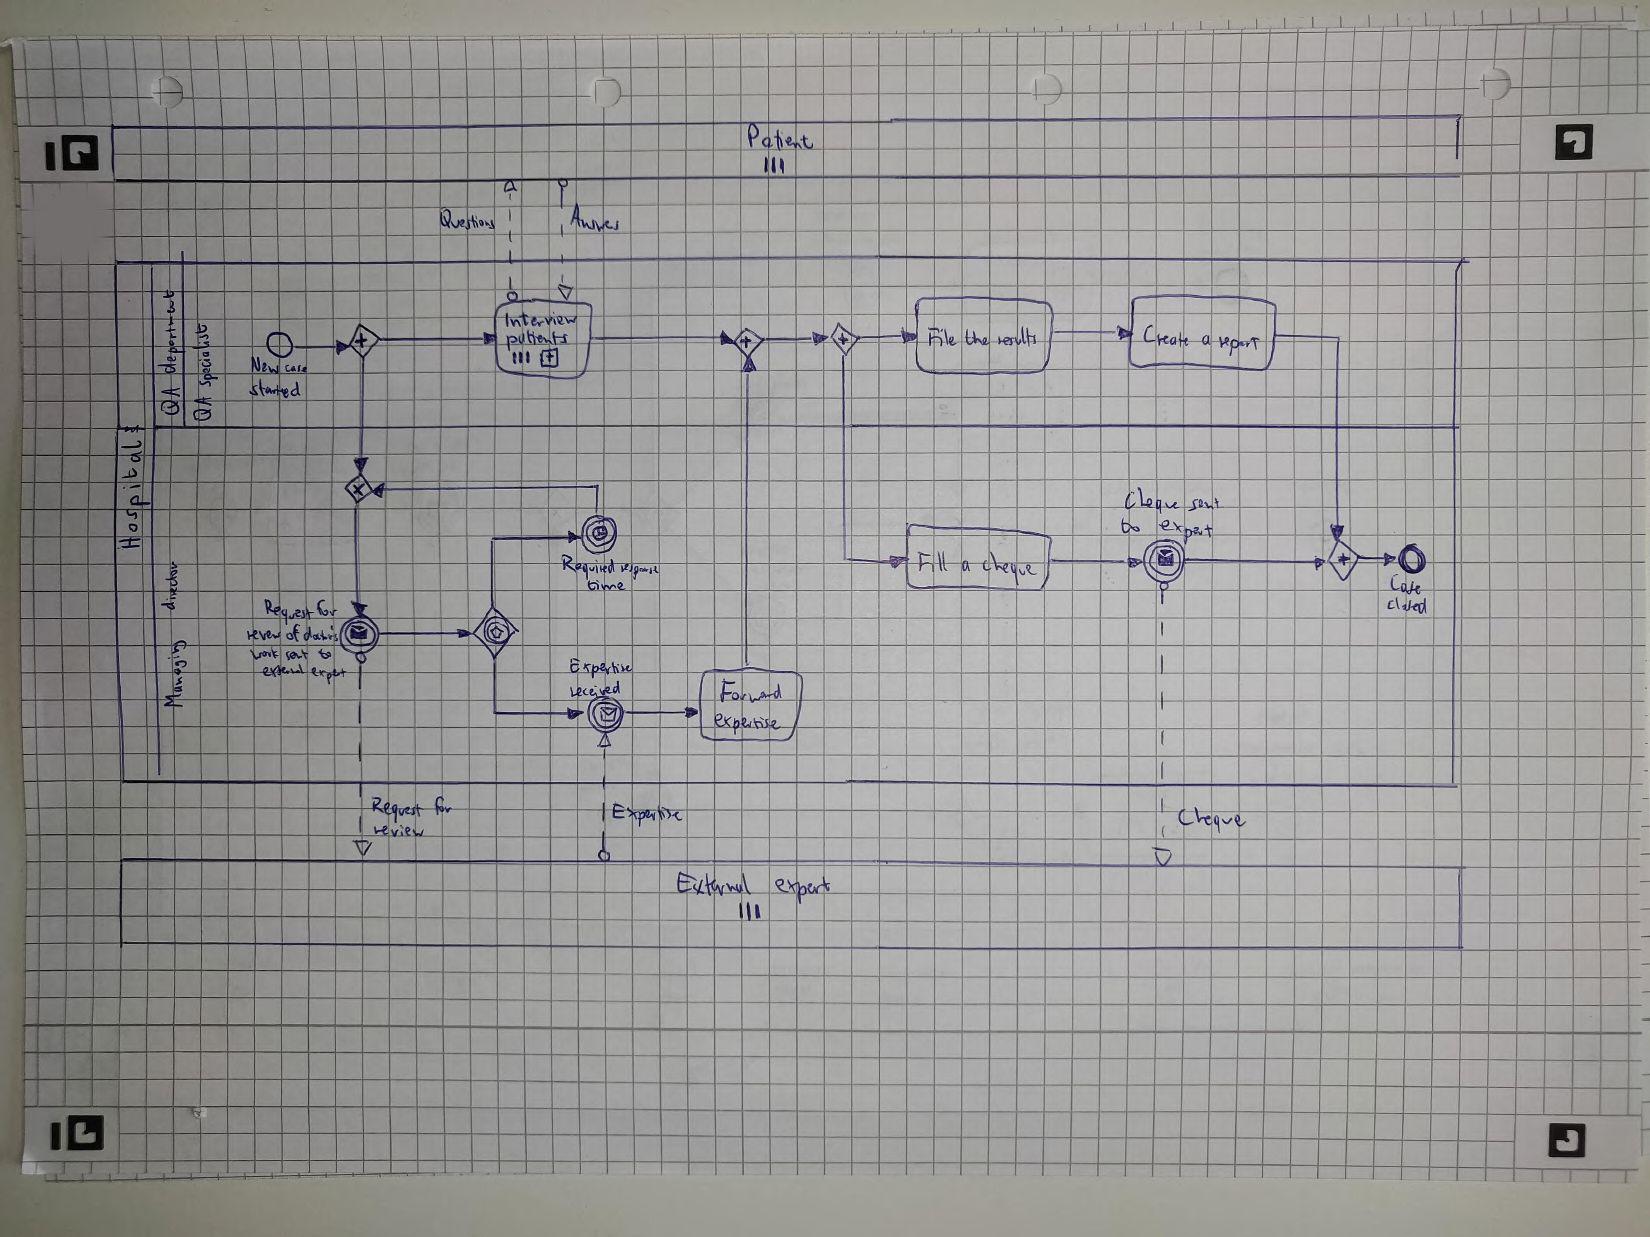 Patient
Questions
Answer
Hospital
QA department
QA specialist
New case
started
Interview
patients
File the results
Create a report
Managing director
Required response
time
Request for
review of doctor's
work sent to
external expert
Expertise
received
Forward
expertise
Fill a cheque
Cheque sent
to expert
Case
closed
Request for
review
Expertise
Cheque
External expert